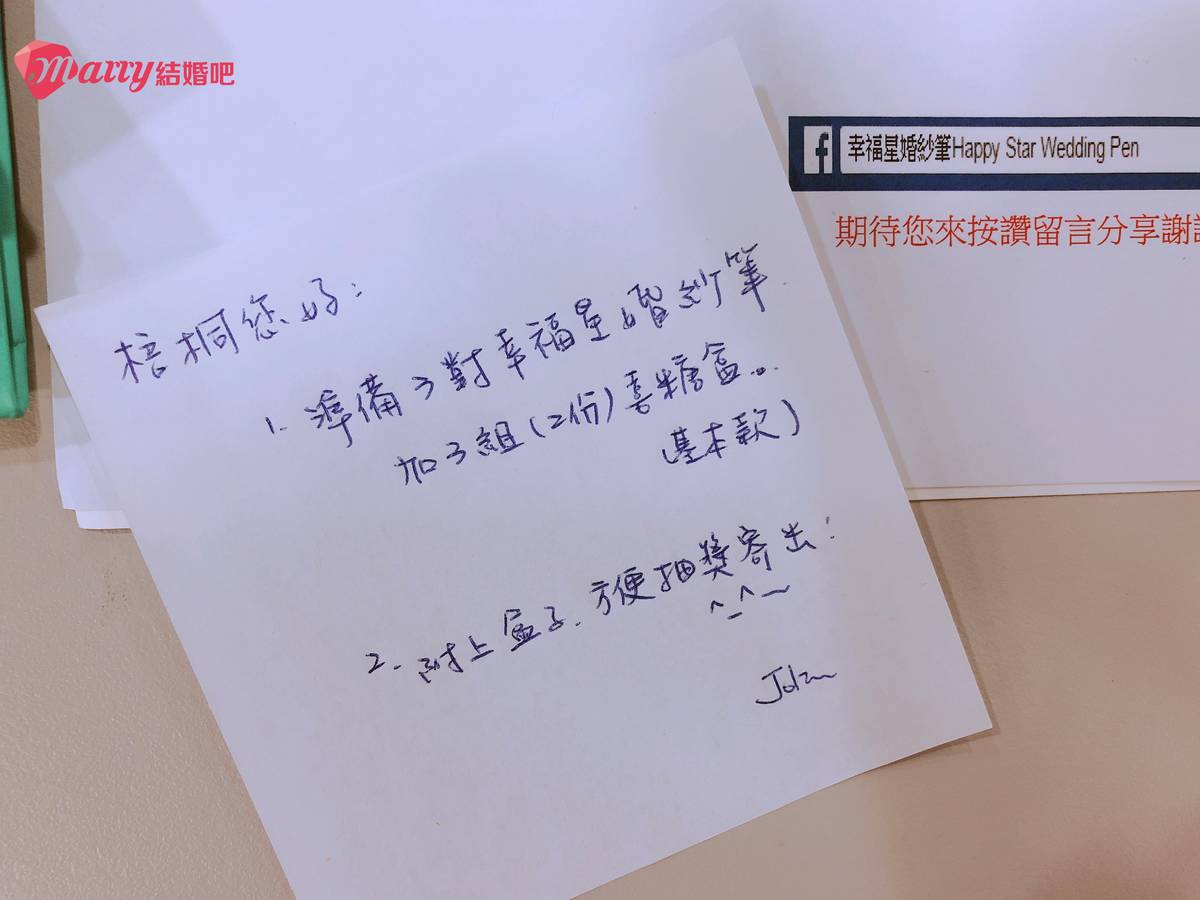 Marry結婚吧
幸福星婚紗筆Happy Star Wedding Pen
期待您來按讚留言分享謝
梧桐您好:
1. 準備3對幸福星婚紗筆
加3組(2份)喜糖盒...
(基本款)
2. 附上盒子.方便抽獎寄出!
^_^~
John